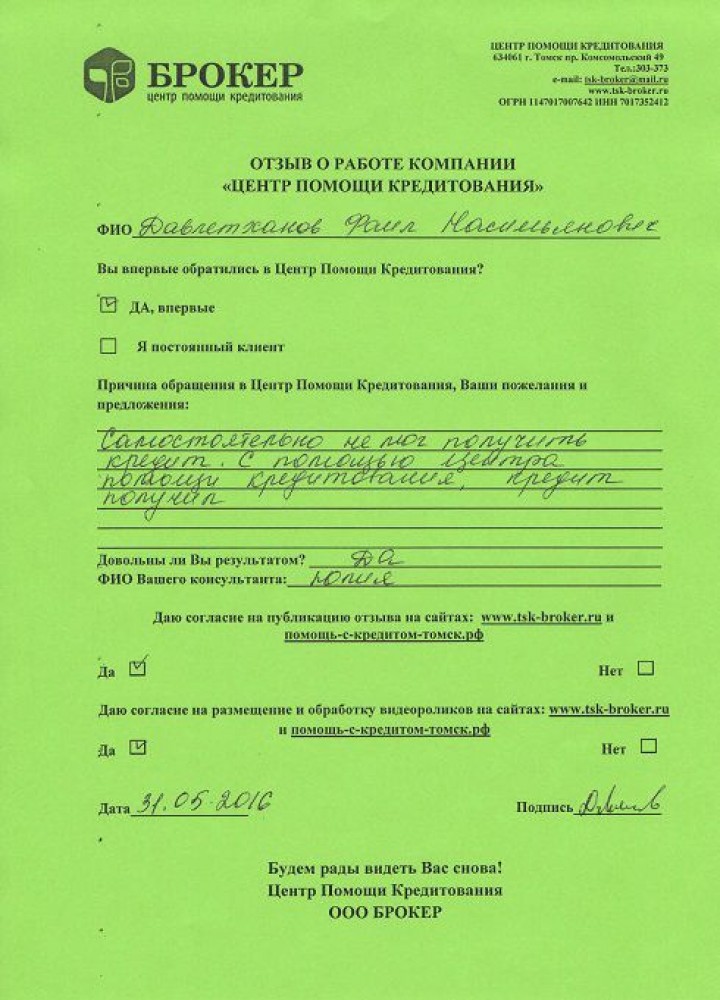 БРОКЕР
центр помощи кредитования
ЦЕНТР ПОМОЩИ КРЕДИТОВАНИЯ
634061 г. Томск пр. Комсомольский 49
Тел.:303-373
e-mail: tsk-broker@mail.ru
www.tsk-broker.ru
ОГРН 1147017007642 ИНН 7017352412
ОТЗЫВ О РАБОТЕ КОМПАНИИ
«ЦЕНТР ПОМОЩИ КРЕДИТОВАНИЯ»
ФИО Давлетханов Фаил
Вы впервые обратились в Центр Помощи Кредитования?
ДА, впервые
Я постоянный клиент
Причина обращения в Центр Помощи Кредитования, Ваши пожелания и
предложения:
Самостоятельно не мог получить
кредит. С помощью центра
помощи кредитования, кредит
получил
Довольны ли Вы результатом? Да
ФИО Вашего консультанта: Юлия
Даю согласие на публикацию отзыва на сайтах: www.tsk-broker.ru и
помощь-с-кредитом-томск.рф
Да Нет
Даю согласие на размещение и обработку видеороликов на сайтах: www.tsk-broker.ru
и помощь-с-кредитом-томск.рф
Да Нет
Дата 31.05.2016 Подпись
Будем рады видеть Вас снова!
Центр Помощи Кредитования
ООО БРОКЕР